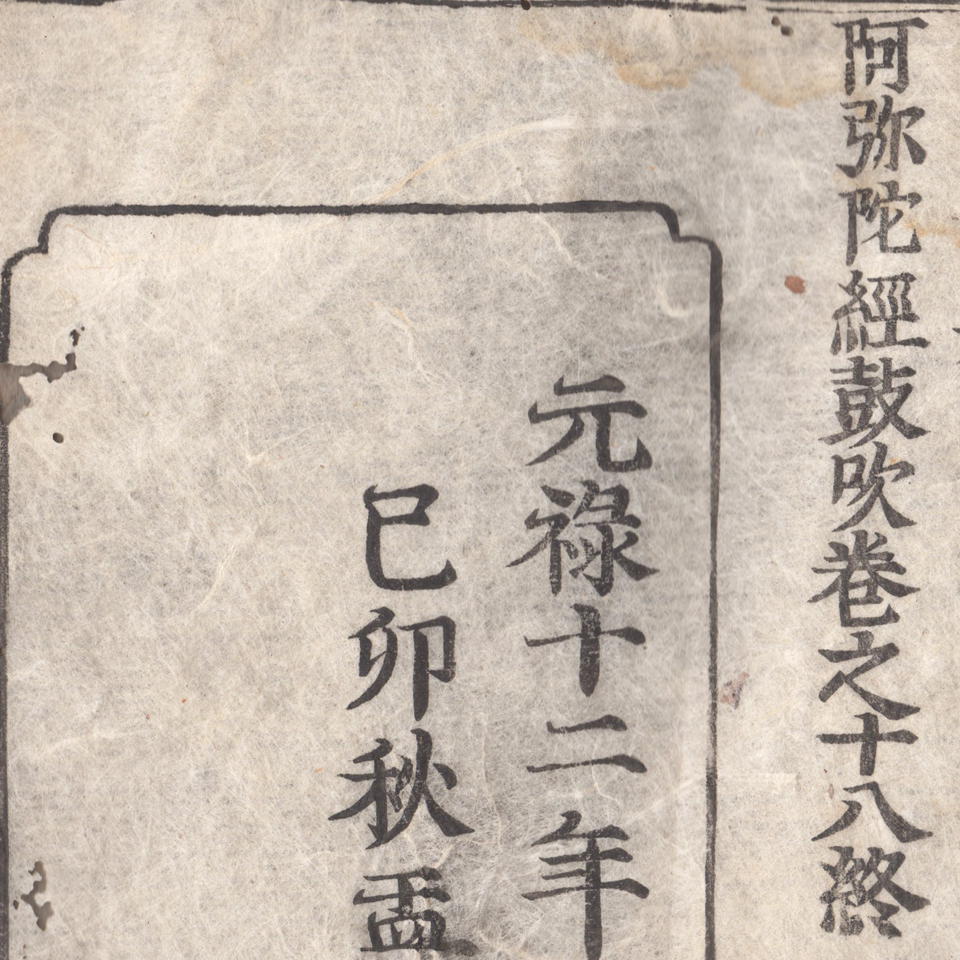 阿弥陀經鼓吹卷之十八終
元禄十二年
巳卯秋盂